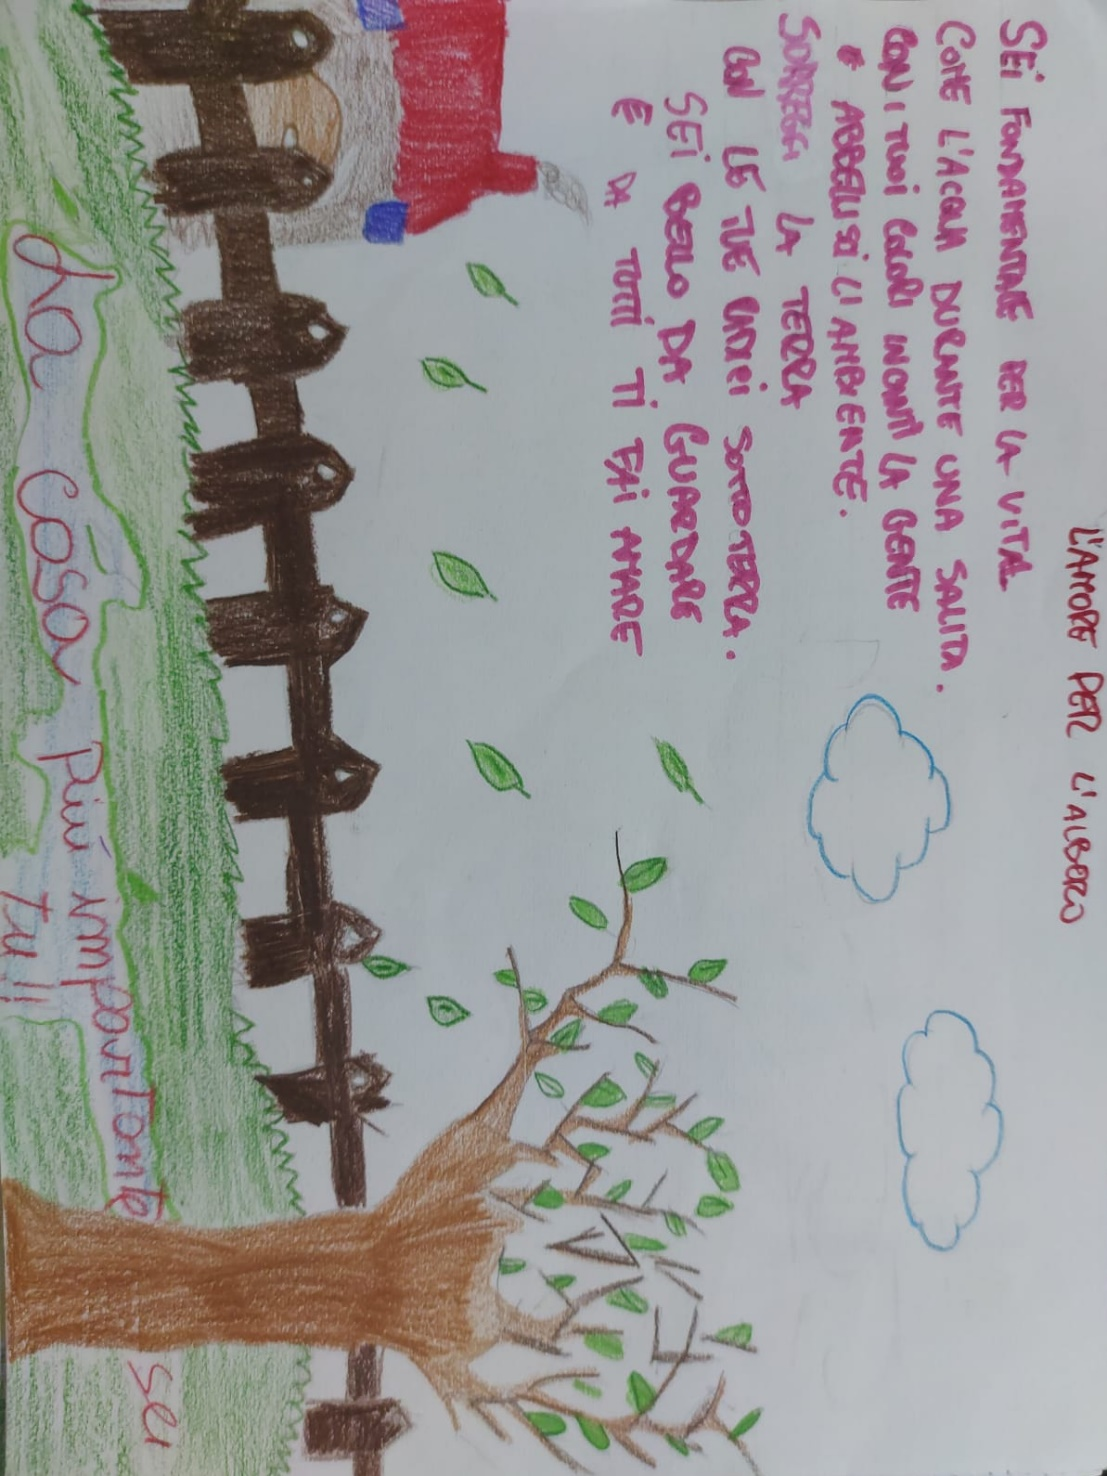 L'AMORE PER L'ALBERO
SEI FONDAMENTALE PER LA VITA
COME L'ACQUA DURANTE UNA SALITA.
CON I TUOI COLORI INCANTI LA GENTE
E ABBELLISCI L'AMBIENTE.
SORREGGI LA TERRA
CON LE TUE RADICI SOTTOTERRA.
SEI BELLO DA GUARDARE
E DA TUTTI TI FAI AMARE
La cosa più importante sei
tu!!